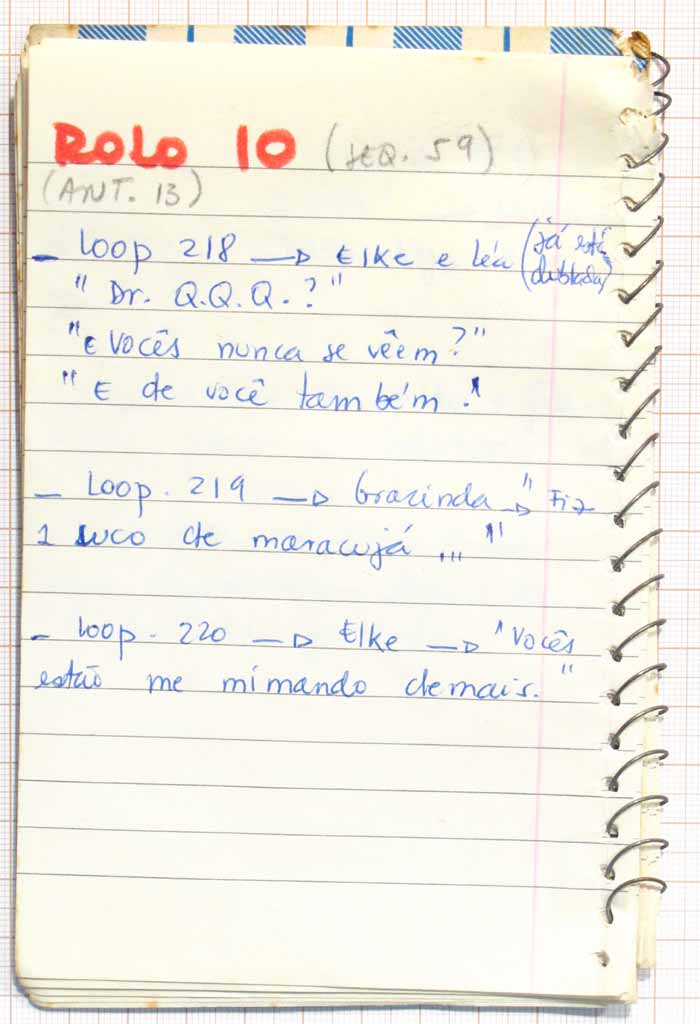 ROLO 10 (SEQ. 59)
(ANT. 13)
- Loop 218 → Elke e Léa (já está dublada)
" Dr. Q.Q.Q.?"
"E vocês nunca se vêem?"
"E de você também."
- Loop. 219 → Grazinda → "Fiz
1 suco de maracujá ..."
- Loop. 220 → Elke → "Vocês
estão me mimando demais."